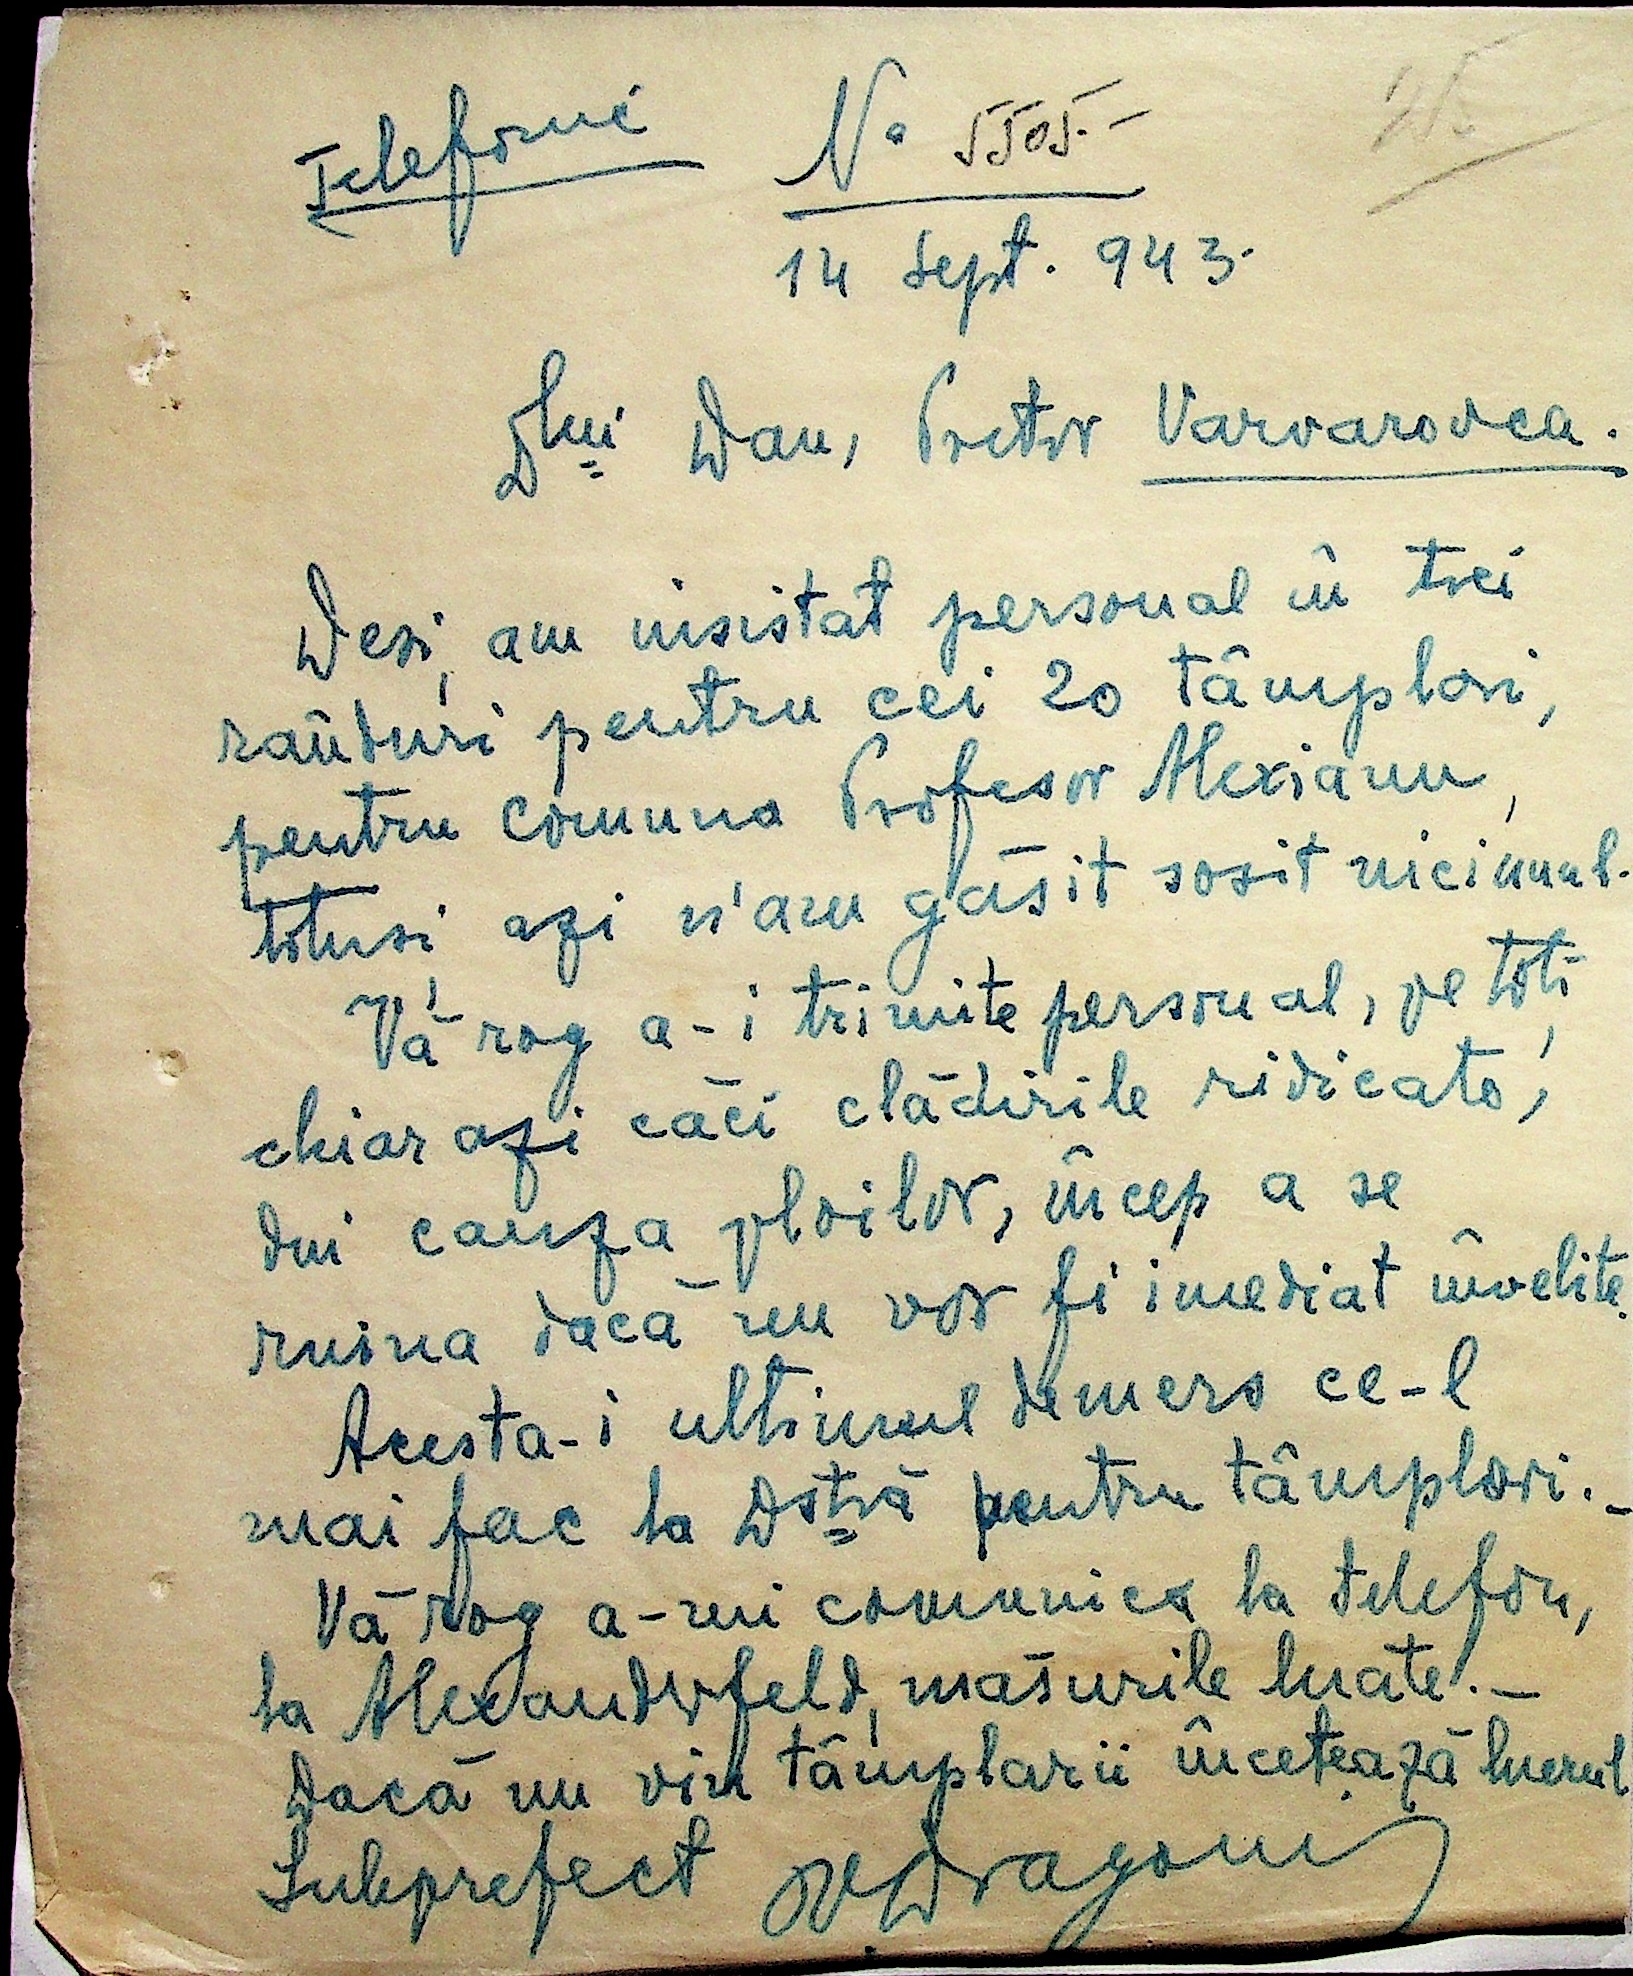 Telefonic No 5505.-
14 Sept. 943.
Dlui Dan, Pretor Varvarovca.
Deși, am insistat personal în trei
rânduri pentru cei 20 tâmplari,
pentru comuna Profesor Alexianu,
totuși azi n'am găsit sosit niciunul.
Vă rog a-i trimite personal, pe toți
chiar azi căci clădirile ridicate,
din cauza ploilor, încep a se
ruina dacă nu vor fi imediat învelite.
Acesta-i ultimul demers ce-l
mai fac la Dstră pentru tâmplari.-
Vă rog a-mi comunica la telefon,
la Alexanderfeld, măsurile luate.-
Dacă nu vin tâmplarii încetează lucrul
Subprefect